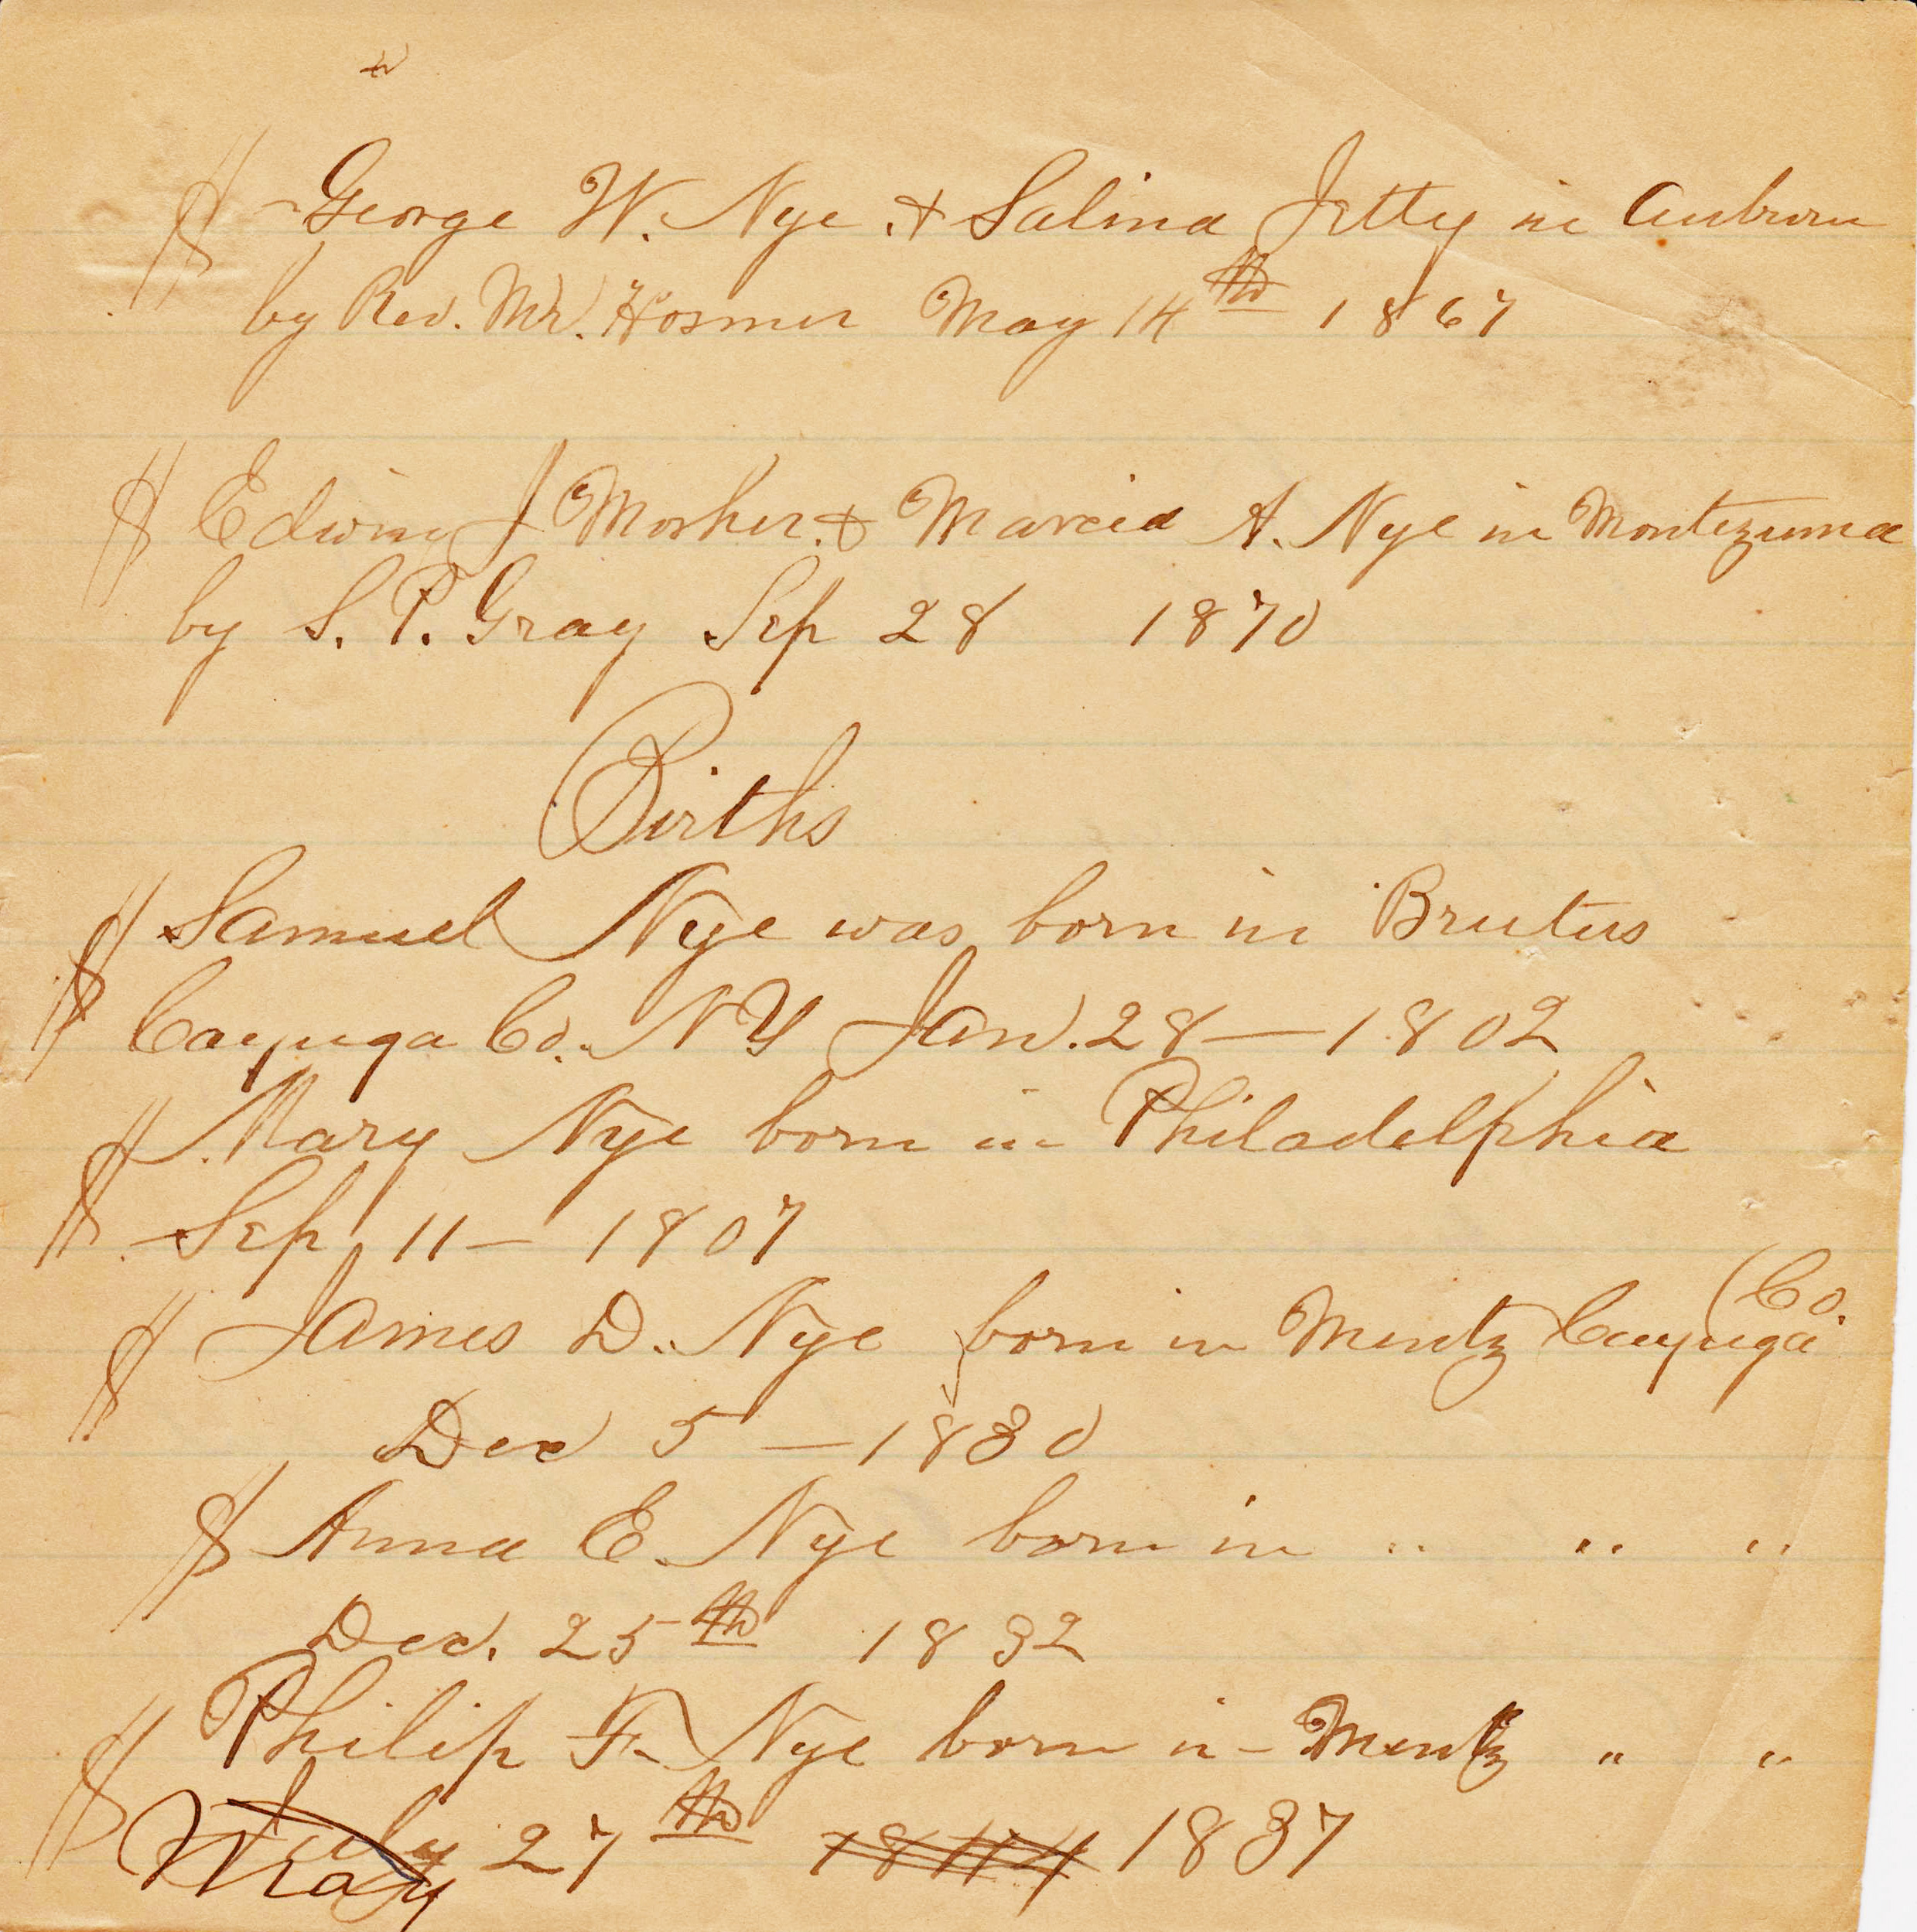 George W. Nye & Salina Jetty in Auburn
by Rev. Mr. Hosmer May 14th 1867
Edwin J Mosher & Marcia A. Nye in Montezuma
by S. P. Gray Sep 28 1870
Births
Samuel Nye was born in Brutus
Cayuga Co. N Y Jan. 28 — 1802
Mary Nye born in Philadelphia
Sep 11 — 1807
James D. Nye born in Mentz Cayuga (Co.
Dec 5 — 1830
Anna E. Nye born in " " "
Dec. 25th 1832
Philip F. Nye born in - Mentz " "
July May 27th 1844 1837